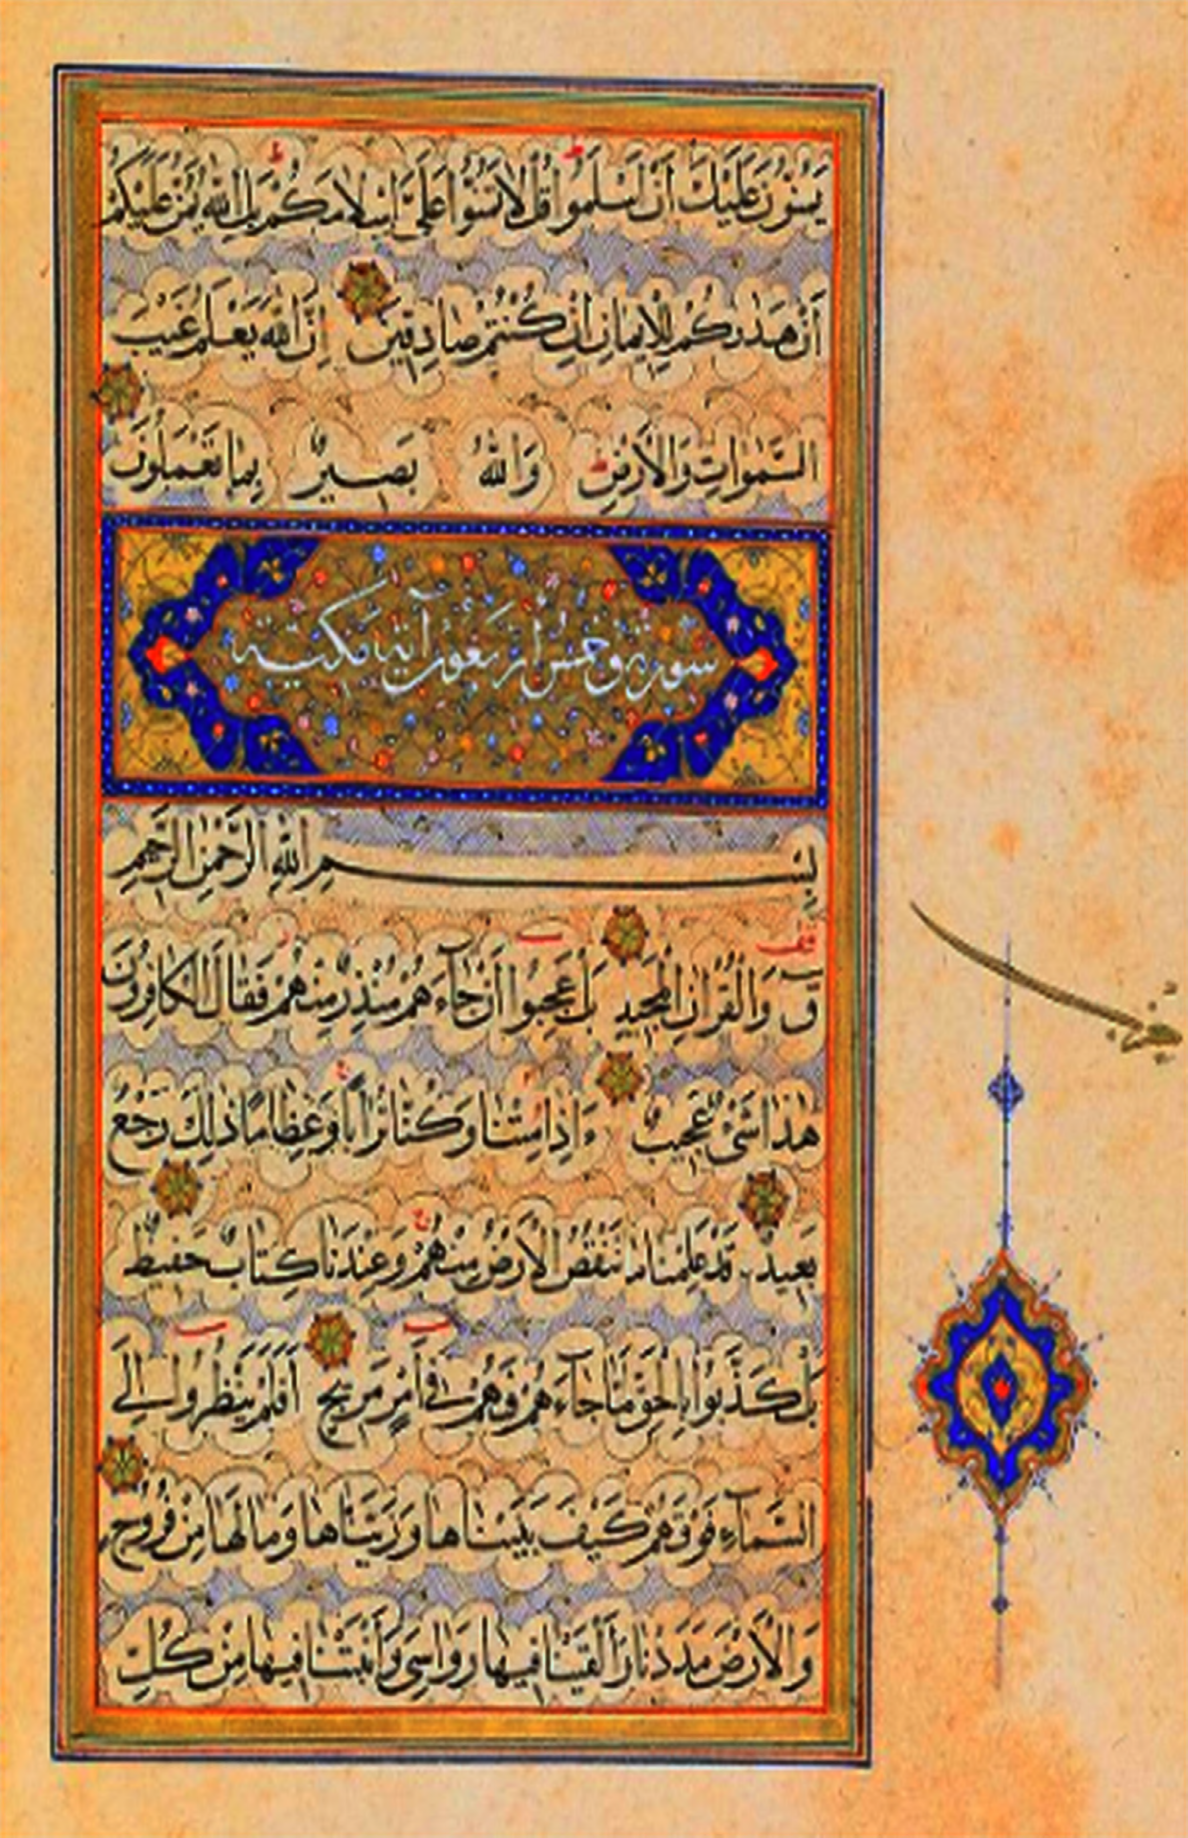 يَمُنُّونَ عَلَيْكَ أَنْ أَسْلَمُوا قُلْ لَا تَمُنُّوا عَلَيَّ إِسْلَامَكُمْ بَلِ اللَّهُ يَمُنُّ عَلَيْكُمْ
أَنْ هَدَاكُمْ لِلْإِيمَانِ إِنْ كُنْتُمْ صَادِقِينَ إِنَّ اللَّهَ يَعْلَمُ غَيْبَ
السَّمٰوَاتِ وَالْأَرْضِ وَاللَّهُ بَصِيرٌ بِمَا تَعْمَلُونَ
سورة ق خمس أربعون آية مكية
بِسْمِ اللَّهِ الرَّحْمٰنِ الرَّحِيمِ
ق وَالْقُرْآنِ الْمَجِيدِ بَلْ عَجِبُوا أَنْ جَاءَهُمْ مُنْذِرٌ مِنْهُمْ فَقَالَ الْكَافِرُونَ
هٰذَا شَيْءٌ عَجِيبٌ ءَإِذَا مِتْنَا وَكُنَّا تُرَابًا وَعِظَامًا ذٰلِكَ رَجْعٌ
بَعِيدٌ قَدْ عَلِمْنَا مَا تَنْقُصُ الْأَرْضُ مِنْهُمْ وَعِنْدَنَا كِتَابٌ حَفِيظٌ
بَلْ كَذَّبُوا بِالْحَقِّ لَمَّا جَاءَهُمْ فَهُمْ فِي أَمْرٍ مَرِيجٍ أَفَلَمْ يَنْظُرُوا إِلَى
السَّمَاءِ فَوْقَهُمْ كَيْفَ بَنَيْنَاهَا وَزَيَّنَّاهَا وَمَا لَهَا مِنْ فُرُوجٍ
وَالْأَرْضَ مَدَدْنَاهَا وَأَلْقَيْنَا فِيهَا رَوَاسِيَ وَأَنْبَتْنَا فِيهَا مِنْ كُلِّ